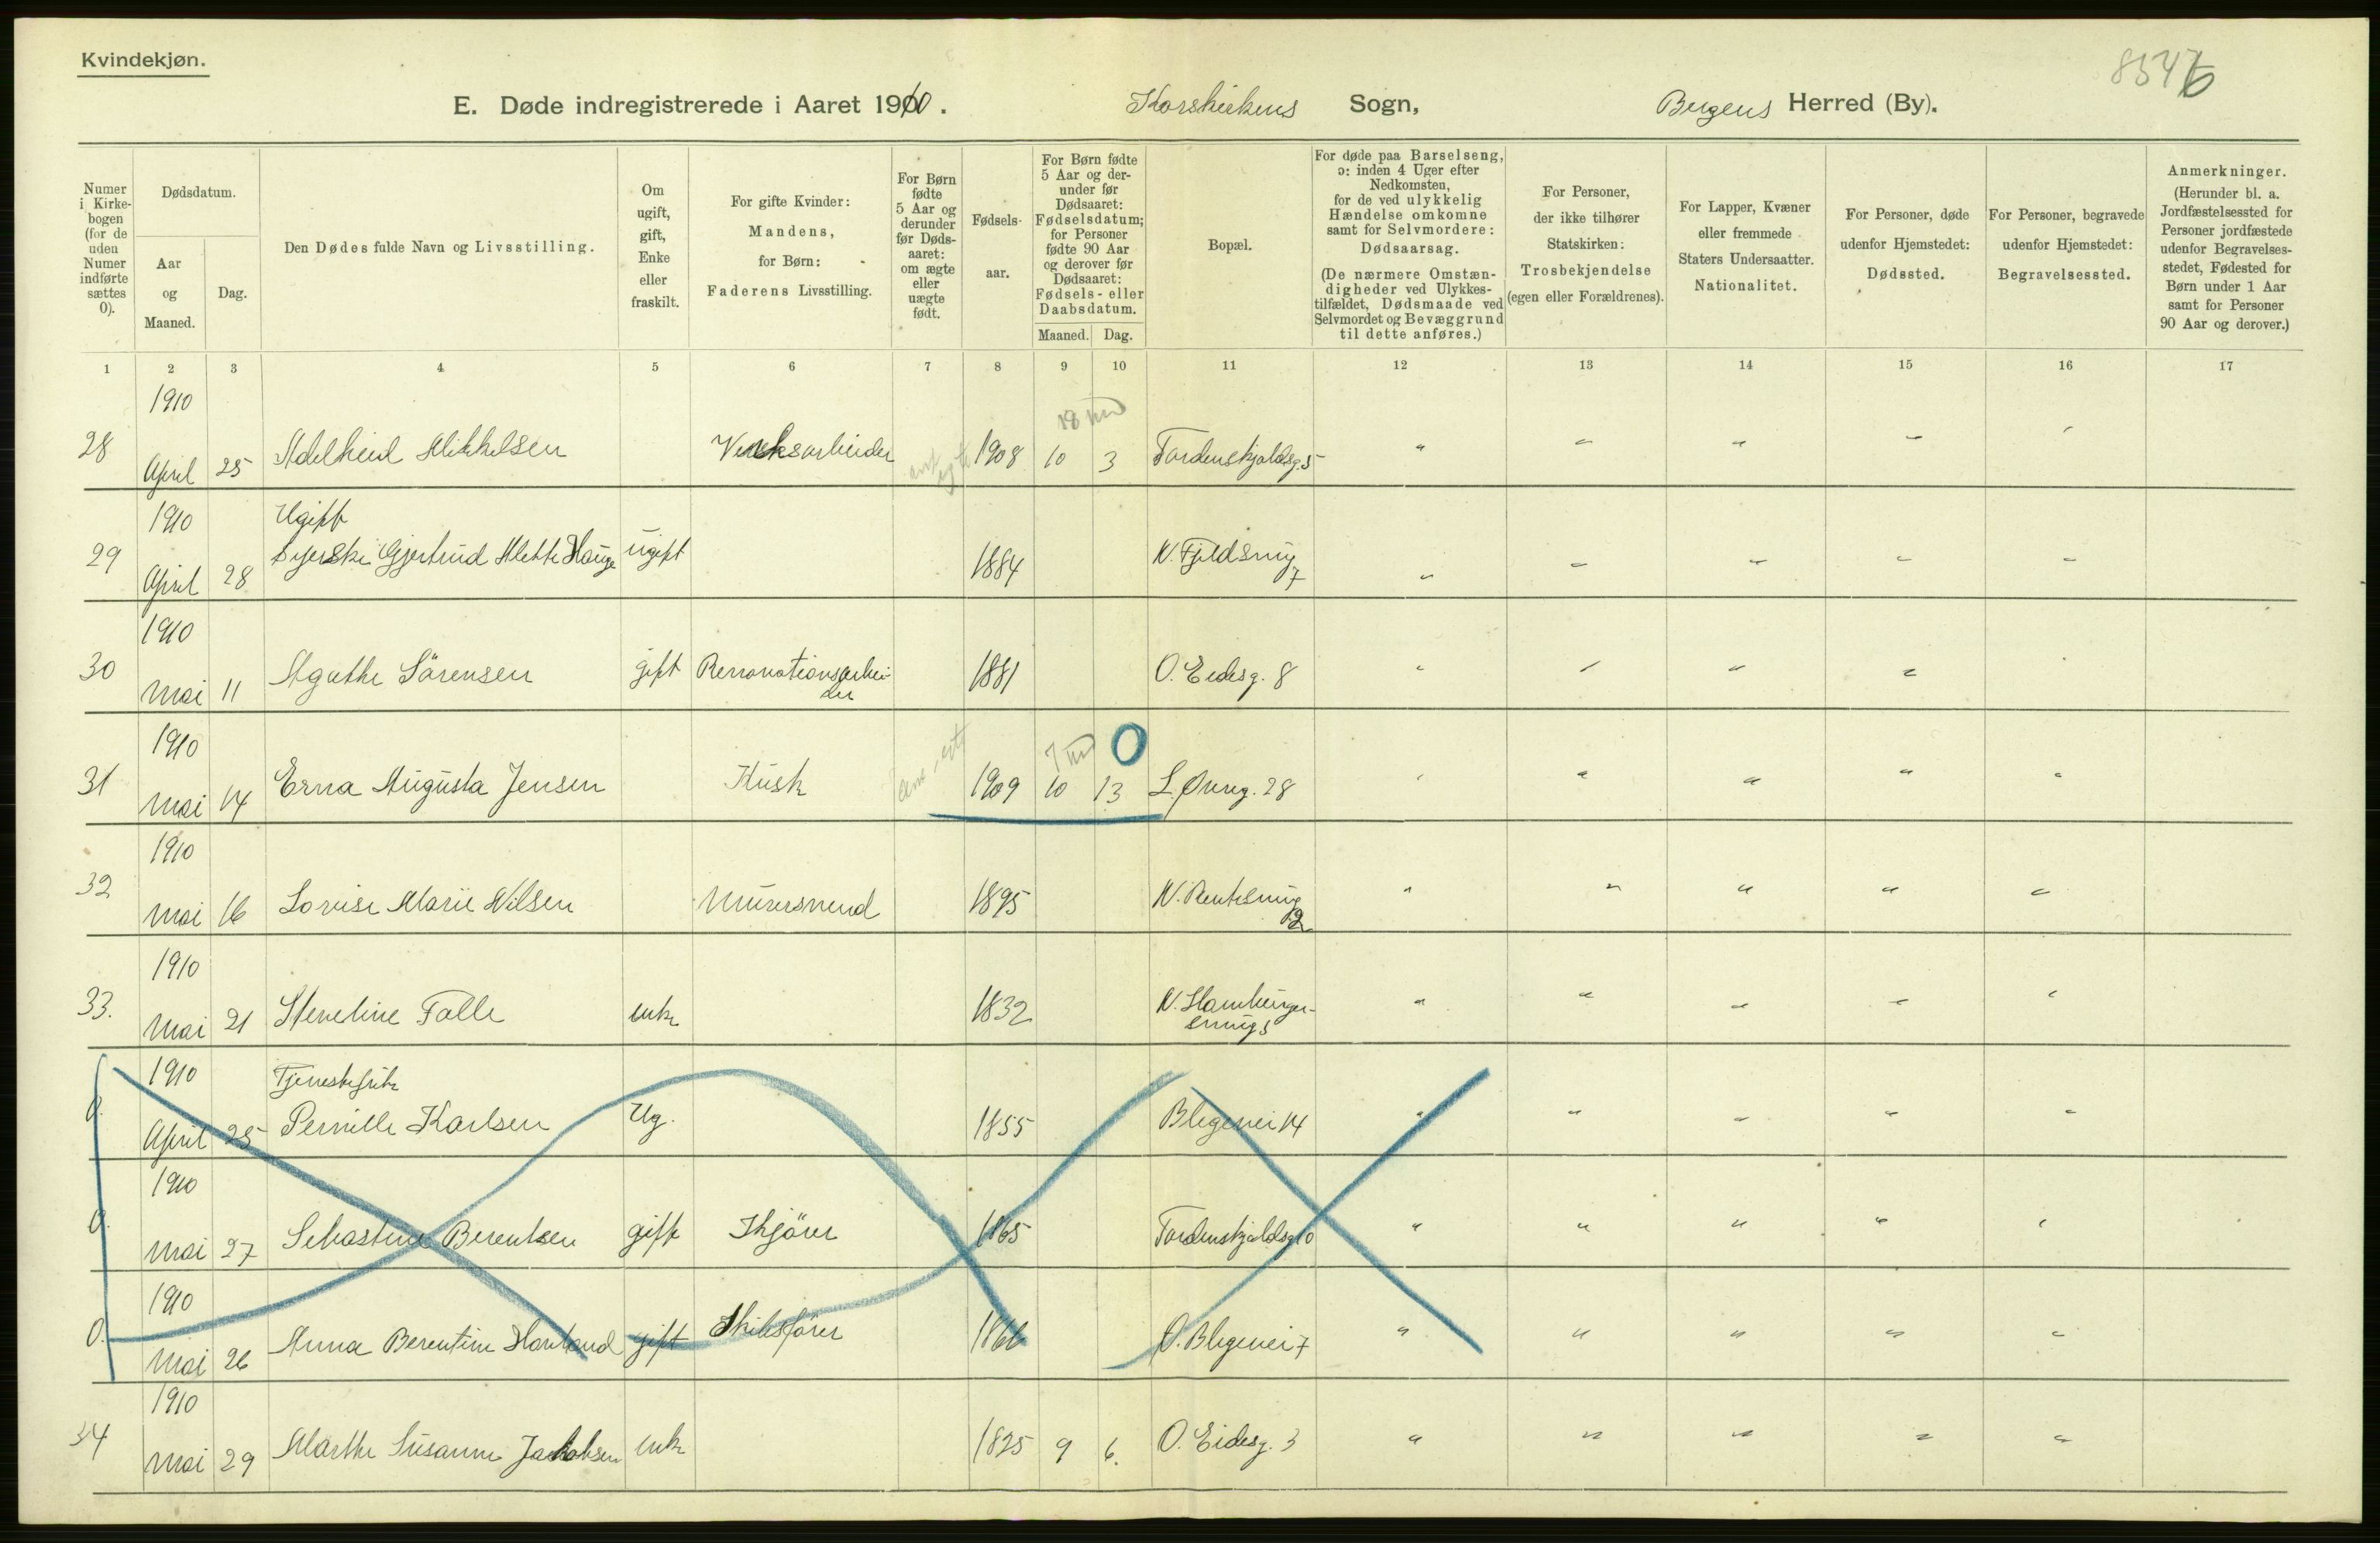 Kvindekjøn.
8546
E. Døde indregistrerede i Aaret 1910. Korskirkens Sogn, Bergens Herred (By).
Numer i Kirke-bogen (for de uden Numer indførte sættes 0).
Dødsdatum.
Aar og Maaned.
Dag.
Den Dødes fulde Navn og Livsstilling.
Om ugift, gift, Enke eller fraskilt.
For gifte Kvinder: Mandens, for Børn: Faderens Livsstilling.
For Børn fødte 5 Aar og derunder før Døds-aaret: om ægte eller uægte født.
Fødsels-aar.
For Børn fødte 5 Aar og der-under før Dødsaaret: Fødselsdatum; for Personer fødte 90 Aar og derover før Dødsaaret: Fødsels- eller Daabsdatum.
Maaned. Dag.
Bopæl.
For døde paa Barselseng, ɔ: inden 4 Uger efter Nedkomsten, for de ved ulykkelig Hændelse omkomne samt for Selvmordere: Dødsaarsag.
(De nærmere Omstæn-digheder ved Ulykkes-tilfældet, Dødsmaade ved Selvmordet og Bevæggrund til dette anføres.)
For Personer, der ikke tilhører Statskirken: Trosbekjendelse (egen eller Forældrenes).
For Lapper, Kvæner eller fremmede Staters Undersaatter. Nationalitet.
For Personer, døde udenfor Hjemstedet: Dødssted.
For Personer, begravede udenfor Hjemstedet: Begravelsessted.
Anmerkninger.
(Herunder bl. a. Jordfæstelsessted for Personer jordfæstede udenfor Begravelses-stedet, Fødested for Børn under 1 Aar samt for Personer 90 Aar og derover.)
1 2 3 4 5 6 7 8 9 10 11 12 13 14 15 16 17
1910
18 md
28 April 25 Adelheid Mikkelsen Verksarbeider ant. egte 1908 10 3 Tordenskjoldsg. 5 " " " " "
1910 Ugift
29 April 28 Syerske Gjertrud Mette Hauge ugift 1884 N. Fjeldsmug 7 " " " " "
1910
30 Mai 11 Agathe Sörensen gift Renovationsarbei-der 1881 O. Eidesg. 8 " " " "
1910
7 md 0
31 Mai 14 Erna Augusta Jensen Kusk ant. egt 1909 10 13 L. Øvreg. 28 " " " " "
1910
32 Mai 16 Lovise Marie Nilsen Murersvend 1895 N. Rentesmug 12 " " " " "
1910
33. Mai 21 Steneline Falle enke 1832 N. Hamburger-smug 5 " " " " "
1910 Tjenestepike
0. April 25 Pernille Karlsen Ug. 1855 Blegevei 14 " " " " "
1910
0. Mai 27 Sebastine Berentsen gift 1865 Tordenskjoldsg 10 " " " " "
1910
0. Mai 26 Anna Berentine Havland gift Skibsförer 1866 O. Blegevei 7 " " " " "
1910
34 Mai 29 Marthe Susanne Jakobsen enke 1825 9 6. O. Eidesg. 3 " " " " "